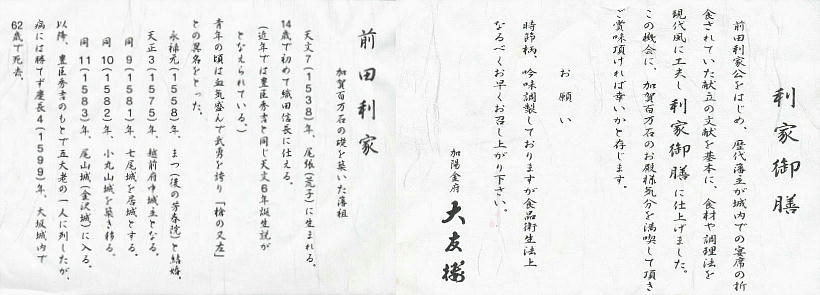 利家御膳
前田利家公をはじめ、歴代藩主が城内での宴席の折
食されていた献立の文献を基本に、食材や調理法を
現代風に工夫し 利家御膳 に仕上げました。
この機会に、加賀百万石のお殿様気分を満喫して頂き
ご賞味頂ければ幸いかと存じます。
お願い
時節柄、吟味調製しておりますが食品衛生法上
なるべくお早くお召し上がり下さい。
加陽金府
大友楼
前田利家
加賀百万石の礎を築いた藩祖
天文7(1538)年、尾張(荒子)に生まれる。
14歳で初めて織田信長に仕える。
(近年では豊臣秀吉と同じ天文6年誕生説が
となえられている。)
青年の頃は血気盛んで武勇を誇り「槍の又左」
との異名をとった。
永禄元(1558)年、まつ(後の芳春院)と結婚。
天正3(1575)年、越前府中城主となる。
同9(1581)年、七尾城を居城とする。
同10(1582)年、小丸山城を築き移る。
同11(1583)年、尾山城(金沢城)に入る。
以降、豊臣秀吉のもとで五大老の一人に列したが、
病には勝てず慶長4(1599)年、大坂城内で
62歳で死去。